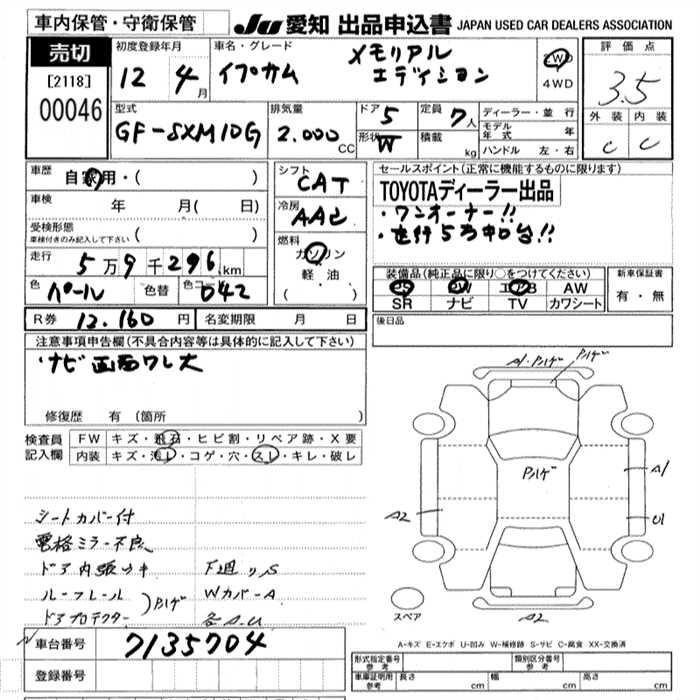 車内保管・守衛保管
JU 愛知 出品申込書 JAPAN USED CAR DEALERS ASSOCIATION
売切
[2118]
00046
初度登録年月
12 4月
車名・グレード
イプサム
メモリアル
エディション
2WD
4WD
評価点
3.5
外装 内装
C C
型式
GF-SXM10G
排気量
2.000 CC
ドア 5
形状 W
定員 7人
積載 kg
ディーラー・並行
モデル年式 年
ハンドル 左・右
車歴 自家用・( )
車検 年 月( 日)
受検形態
車検付きのみ記入して下さい ( )
走行 5万9千296km
色 パール 色替 色コード 042
シフト CAT
冷房 AAC
燃料
ガソリン
軽油
( )
セールスポイント(正常に機能するものに限ります)
TOYOTAディーラー出品
・ワンオーナー!!
・走行5万キロ台!!
装備品(純正品に限り○をつけてください)
PS PW エアB AW
SR ナビ TV カワシート
新車保証書
有・無
R券 12.160円 名変期限 月 日
後日品
注意事項申告欄(不具合内容等は具体的に記入して下さい)
・ナビ画面ワレ大
修復歴 有 (箇所 )
検査員
記入欄
FW キズ・飛石・ヒビ割・リペア跡・X要
内装 キズ・汚レ・コゲ・穴・スレ・キレ・破レ
シートカバー付
電格ミラー不良
ドア内張キキ 下廻りS
ルーフレール Wカバー A
ドアプロテクター Pハゲ 各A.U
A1・Pハゲ Pハゲ
Pハゲ
A1
A2
U1
スペア
A2
車台番号 7135704
登録番号
A-キズ E-エクボ U-凹み W-補修跡 S-サビ C-腐食 XX-交換済
形式指定番号
参考
類別区分番号
参考
車庫証明用
参考
長さ cm 幅 cm 高さ cm